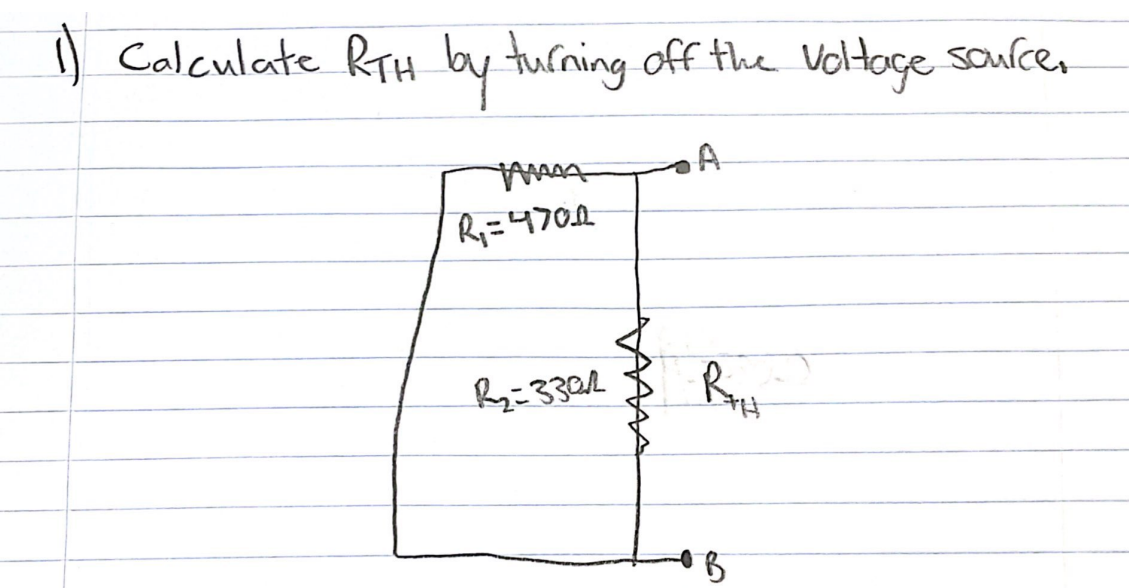 1) Calculate RTH by turning off the voltage source.
A
R₁=470Ω
R₂=330Ω
RTH
B